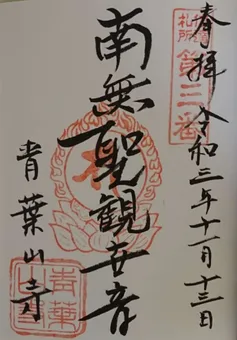 奉拝
札所
第三番
令和三年十一月十三日
南無聖観世音
青葉山寺